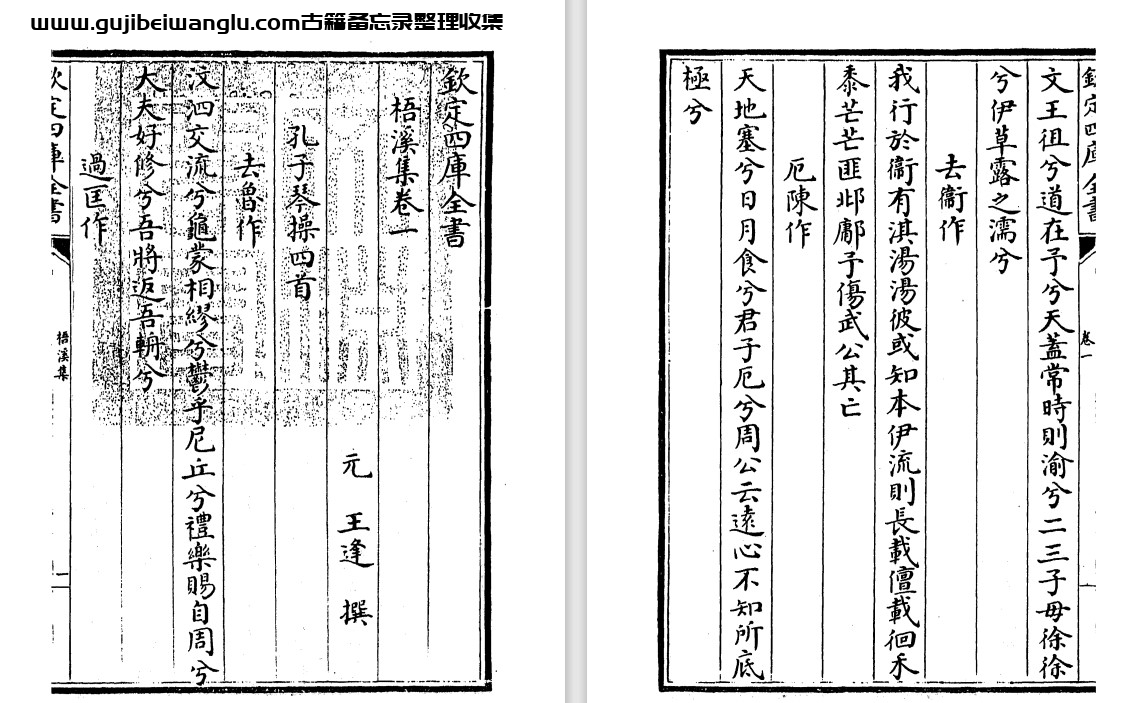 www.gujibeiwanglu.com古籍备忘录整理收集
欽定四庫全書
梧溪集卷一
元 王逢 撰
孔子琴操四首
去魯作
汶泗交流兮龜蒙相繆兮鬱乎尼丘兮禮樂賜自周兮
大夫好修兮吾將返吾輈兮
過匡作
欽定四庫全書
梧溪集
欽定四庫全書
卷一
文王徂兮道在予兮天蓋常時則渝兮二三子毋徐徐
兮伊草露之濡兮
去衞作
我行於衞有淇湯湯彼或知本伊流則長載儃載徊禾
黍芒芒匪邶鄘予傷武公其亡
厄陳作
天地塞兮日月食兮君子厄兮周公云遠心不知所底
極兮